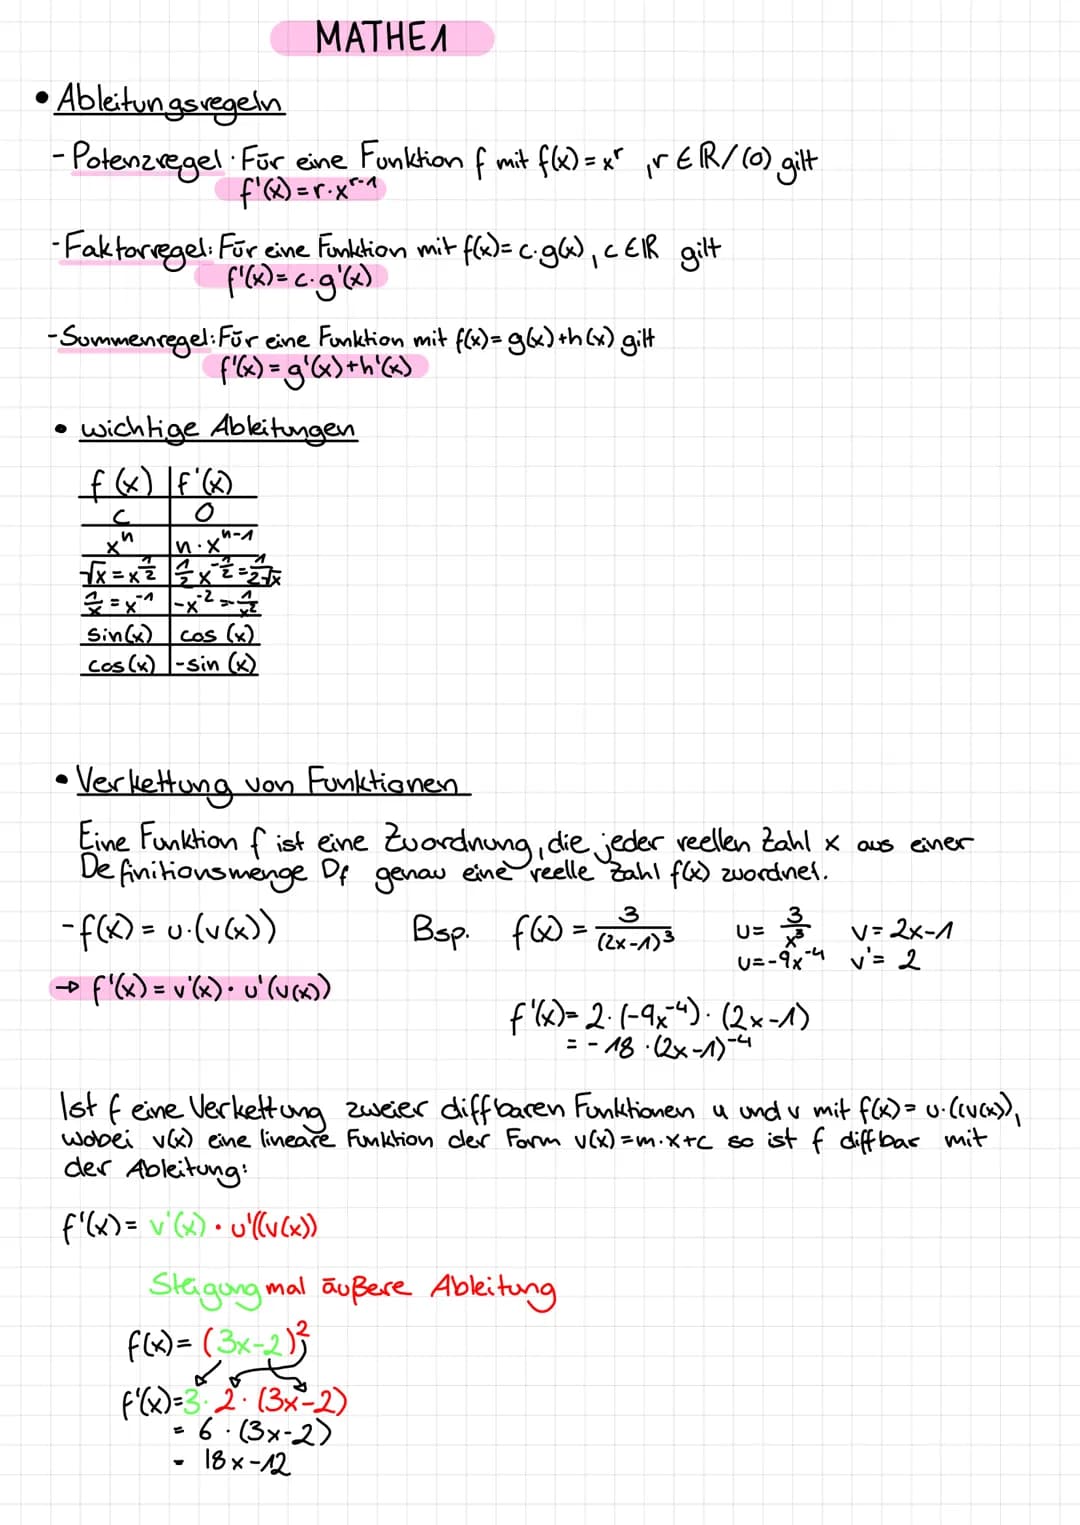 MATHE1
• Ableitungsregeln
- Potenzregel: Für eine Funktion f mit f(x) = x^r , r ∈ ℝ/(0) gilt
f'(x) = r·x^(r-1)
- Faktorregel: Für eine Funktion mit f(x) = c·g(x), c ∈ ℝ gilt
f'(x) = c·g'(x)
- Summenregel: Für eine Funktion mit f(x) = g(x)+h(x) gilt
f'(x) = g'(x)+h'(x)
• wichtige Ableitungen
f(x) | f'(x)
c | 0
x^n | n·x^(n-1)
√x = x^(1/2) | 1/2 x^(-1/2) = 1/(2√x)
1/x = x^-1 | -x^-2 = -1/x^2
sin(x) | cos(x)
cos(x) | -sin(x)
• Verkettung von Funktionen
Eine Funktion f ist eine Zuordnung, die jeder reellen Zahl x aus einer
Definitionsmenge Df genau eine reelle Zahl f(x) zuordnet.
- f(x) = u·(v(x)) Bsp. f(x) = 3/(2x-1)^3 u = 3/x^3 v = 2x-1
u = -9x^-4 v' = 2
→ f'(x) = v'(x)·u'(v(x))
f'(x) = 2·(-9x^-4)·(2x-1)
= -18·(2x-1)^-4
Ist f eine Verkettung zweier diffbaren Funktionen u und v mit f(x) = u·((v(x)),
wobei v(x) eine lineare Funktion der Form v(x) = m·x+c so ist f diffbar mit
der Ableitung:
f'(x) = v'(x)·u'((v(x))
Steigung mal äußere Ableitung
f(x) = (3x-2)^2
f'(x) = 3·2·(3x-2)
= 6·(3x-2)
= 18x-12